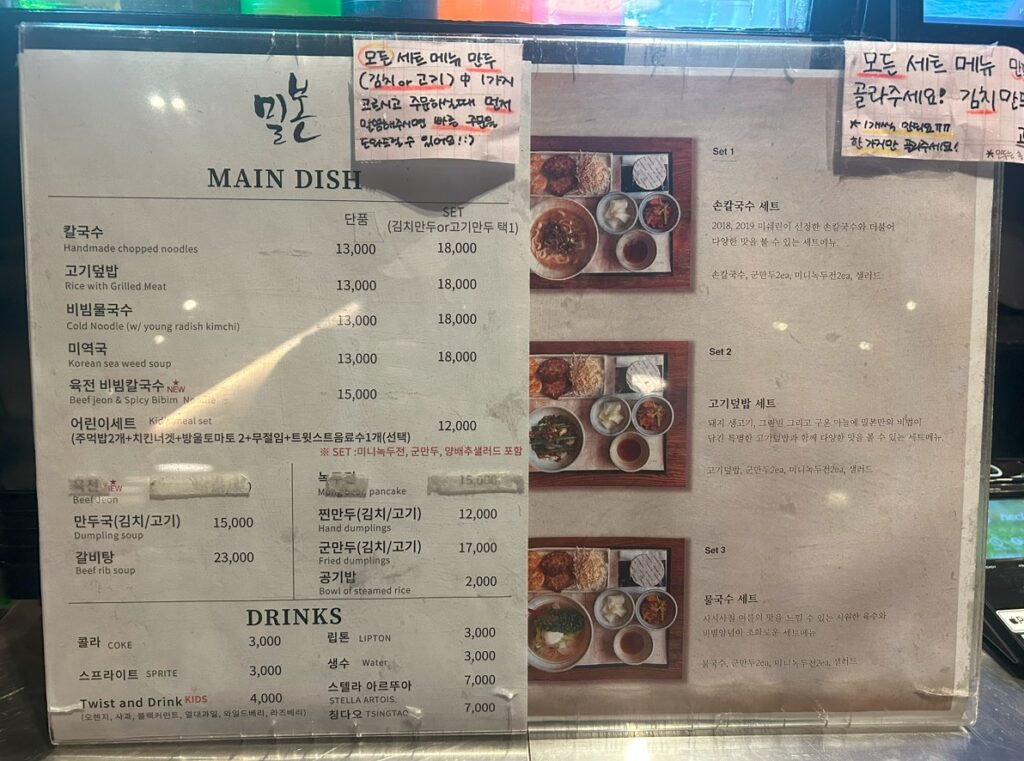 밀본
모든 세트 메뉴 만두
(김치 or 고기) 中 1가지
고르시고 주문하실때 먼저
말씀해주시면 빠른 주문을
도와드릴수 있어요!:)
MAIN DISH
단품 SET
(김치만두or고기만두 택1)
칼국수 13,000 18,000
Handmade chopped noodles
고기덮밥 13,000 18,000
Rice with Grilled Meat
비빔물국수 13,000 18,000
Cold Noodle (w/ young radish kimchi)
미역국 13,000 18,000
Korean sea weed soup
육전 비빔칼국수 NEW 15,000
Beef jeon & Spicy Bibim Noodle
어린이세트 Kid's meal set 12,000
(주먹밥2개+치킨너겟+방울토마토 2+무절임+트윗스트음료수1개(선택)
※ SET :미니녹두전, 군만두, 양배추샐러드 포함
육전 NEW
Beef Jeon
만두국(김치/고기) 15,000
Dumpling soup
갈비탕 23,000
Beef rib soup
녹두전 15,000
Mung bean pancake
찐만두(김치/고기) 12,000
Hand dumplings
군만두(김치/고기) 17,000
Fried dumplings
공기밥 2,000
Bowl of steamed rice
DRINKS
콜라 COKE 3,000
스프라이트 SPRITE 3,000
Twist and Drink KIDS 4,000
(오렌지, 사과, 블랙커런트, 열대과일, 와일드베리, 라즈베리)
립톤 LIPTON 3,000
생수 Water 3,000
스텔라 아르뚜아 7,000
STELLA ARTOIS.
칭다오 TSINGTAO 7,000
모든 세트 메뉴
골라주세요! 김치만두
한 가지만 골라주세요!
Set 1
손칼국수 세트
2018, 2019 미쉐린이 선정한 손칼국수와 더불어
다양한 맛을 볼 수 있는 세트메뉴
손칼국수, 군만두2ea, 미니녹두전2ea, 샐러드
Set 2
고기덮밥 세트
돼지 생고기, 그린빈 그리고 구운 마늘에 밀본만의 비법이
담긴 특별한 고기덮밥과 함께 다양한 맛을 볼 수 있는 세트메뉴
고기덮밥, 군만두2ea, 미니녹두전2ea, 샐러드
Set 3
물국수 세트
사시사철 여름의 맛을 느낄 수 있는 시원한 육수와
비빔양념이 조화로운 세트메뉴
물국수, 군만두2ea, 미니녹두전2ea, 샐러드